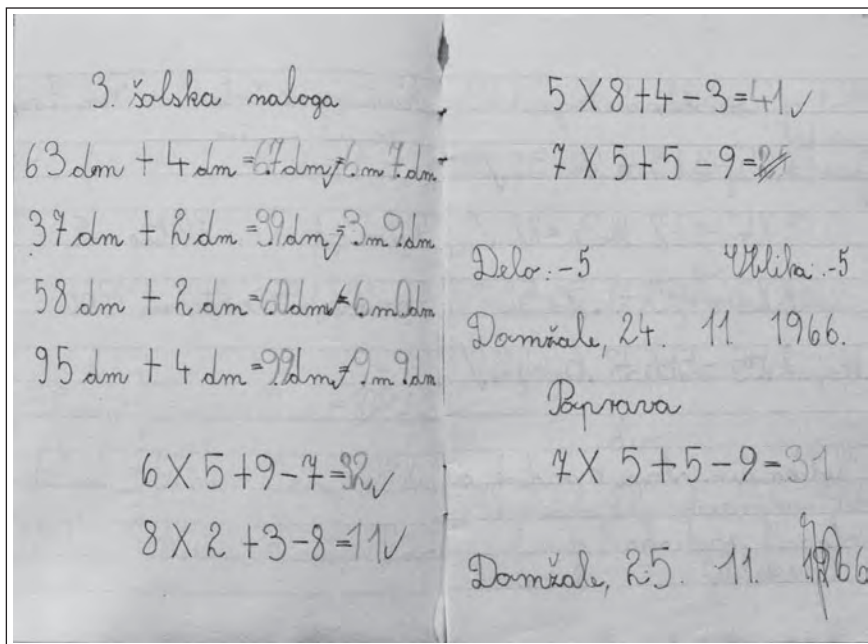 3. šolska naloga
63 dm + 4 dm = 67 dm = 6 m 7 dm
37 dm + 2 dm = 39 dm = 3 m 9 dm
58 dm + 2 dm = 60 dm = 6 m 0 dm
95 dm + 4 dm = 99 dm = 9 m 9 dm
6 X 5 + 9 - 7 = 32 ✓
8 X 2 + 3 - 8 = 11 ✓
5 X 8 + 4 - 3 = 41 ✓
7 X 5 + 5 - 9 =
Delo: -5 Oblika: -5
Domžale, 24. 11 1966.
Poprava
7 X 5 + 5 - 9 = 31
Domžale, 25. 11. 1966